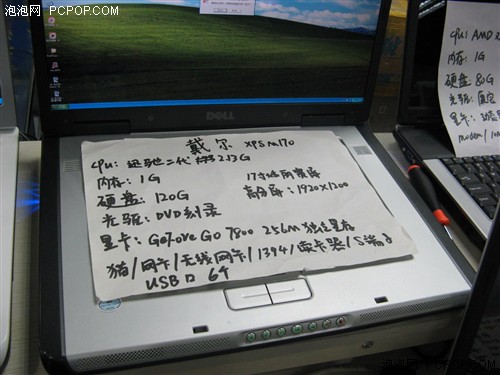 泡泡网 PCPOP.COM
DELL
戴尔 XPS M170
CPU: 迅驰二代 2.13G
内存: 1G 17寸 屏
硬盘: 120G 高分屏: 1920X1200
光驱: DVD刻录
显卡: GeFore Go 7800 256M 独立显存
猫/网卡/无线网卡/1394/读卡器/S端子
USB口 6个
CPU: AMD
内存: 1G
硬盘 80G
光驱:
显卡:
modem/
泡泡网 PCPOP.COM